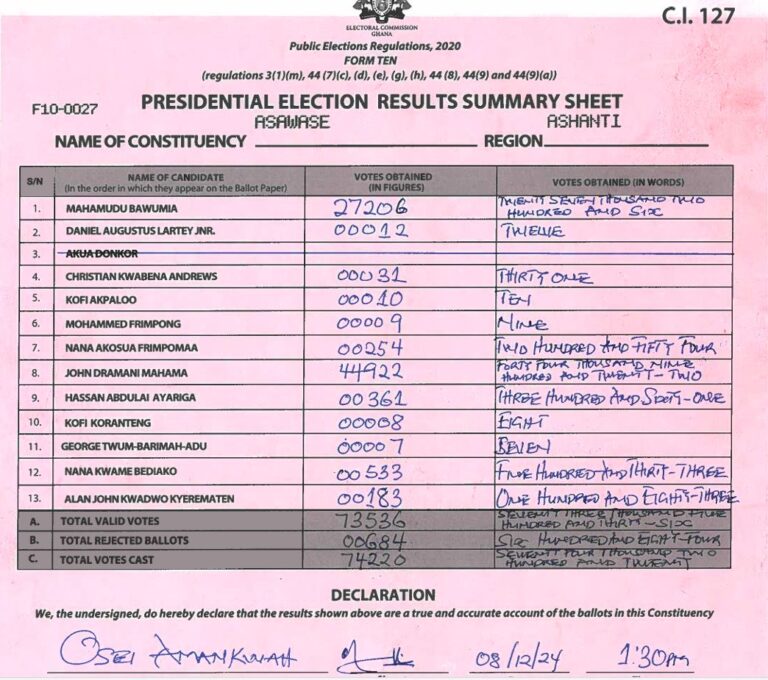 C.I. 127
ELECTORAL COMMISSION
GHANA
Public Elections Regulations, 2020
FORM TEN
(regulations 3(1)(m), 44 (7)(c), (d), (e), (g), (h), 44 (8), 44(9) and 44(9)(a))
F10-0027 PRESIDENTIAL ELECTION RESULTS SUMMARY SHEET
ASAWASE ASHANTI
NAME OF CONSTITUENCY REGION
S/N NAME OF CANDIDATE (In the order in which they appear on the Ballot Paper) VOTES OBTAINED (IN FIGURES) VOTES OBTAINED (IN WORDS)
1. MAHAMUDU BAWUMIA 27206 TWENTY SEVEN THOUSAND TWO HUNDRED AND SIX
2. DANIEL AUGUSTUS LARTEY JNR. 00012 TWELVE
3. AKUA DONKOR
4. CHRISTIAN KWABENA ANDREWS 00031 THIRTY ONE
5. KOFI AKPALOO 00010 TEN
6. MOHAMMED FRIMPONG 00009 NINE
7. NANA AKOSUA FRIMPOMAA 00254 TWO HUNDRED AND FIFTY FOUR
8. JOHN DRAMANI MAHAMA 44922 FORTY FOUR THOUSAND NINE HUNDRED AND TWENTY-TWO
9. HASSAN ABDULAI AYARIGA 00361 THREE HUNDRED AND SIXTY-ONE
10. KOFI KORANTENG 00008 EIGHT
11. GEORGE TWUM-BARIMAH-ADU 00007 SEVEN
12. NANA KWAME BEDIAKO 00533 FIVE HUNDRED AND THIRTY-THREE
13. ALAN JOHN KWADWO KYEREMATEN 00183 ONE HUNDRED AND EIGHTY-THREE
A. TOTAL VALID VOTES 73536 SEVENTY THREE THOUSAND FIVE HUNDRED AND THIRTY-SIX
B. TOTAL REJECTED BALLOTS 00684 SIX HUNDRED AND EIGHTY-FOUR
C. TOTAL VOTES CAST 74220 SEVENTY FOUR THOUSAND TWO HUNDRED AND TWENTY
DECLARATION
We, the undersigned, do hereby declare that the results shown above are a true and accurate account of the ballots in this Constituency
OSEI AMANKWAH 08/12/24 1:30PM